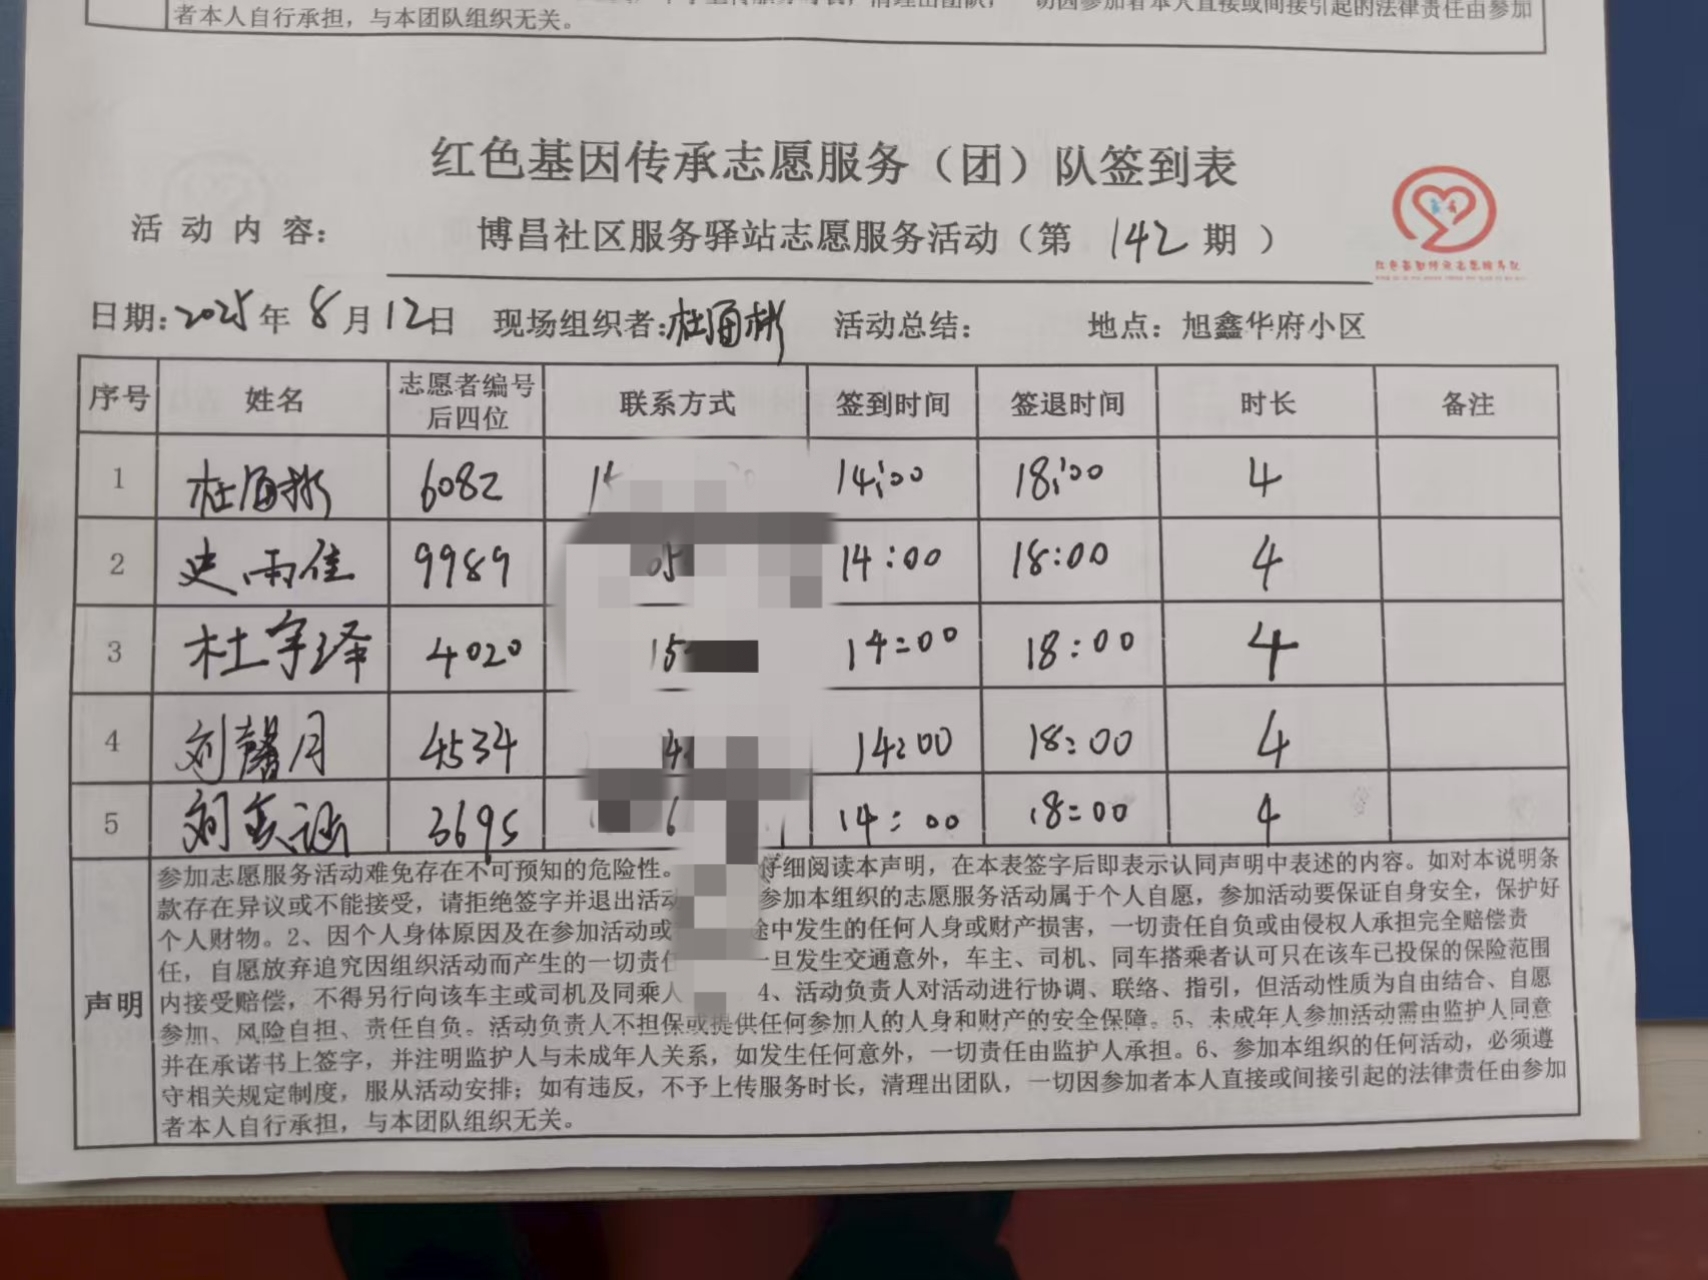 者本人自行承担，与本团队组织无关。
红色基因传承志愿服务（团）队签到表
活动内容： 博昌社区服务驿站志愿服务活动（第 142 期）
日期：2025年 8月12日 现场组织者： 活动总结： 地点：旭鑫华府小区
序号 姓名 志愿者编号后四位 联系方式 签到时间 签退时间 时长 备注
1 6082 14:00 18:00 4
2 史雨佳 9989 05 14:00 18:00 4
3 杜宇泽 4020 15 14:00 18:00 4
4 刘馨月 4534 14:00 18:00 4
5 3695 6 14:00 18:00 4
声明
参加志愿服务活动难免存在不可预知的危险性。 仔细阅读本声明，在本表签字后即表示认同声明中表述的内容。如对本说明条
款存在异议或不能接受，请拒绝签字并退出活动 参加本组织的志愿服务活动属于个人自愿，参加活动要保证自身安全，保护好
个人财物。2、因个人身体原因及在参加活动或 途中发生的任何人身或财产损害，一切责任自负或由侵权人承担完全赔偿责
任，自愿放弃追究因组织活动而产生的一切责任 一旦发生交通意外，车主、司机、同车搭乘者认可只在该车已投保的保险范围
内接受赔偿，不得另行向该车主或司机及同乘人 4、活动负责人对活动进行协调、联络、指引，但活动性质为自由结合、自愿
参加、风险自担、责任自负。活动负责人不担保或提供任何参加人的人身和财产的安全保障。5、未成年人参加活动需由监护人同意
并在承诺书上签字，并注明监护人与未成年人关系，如发生任何意外，一切责任由监护人承担。6、参加本组织的任何活动，必须遵
守相关规定制度，服从活动安排；如有违反，不予上传服务时长，清理出团队，一切因参加者本人直接或间接引起的法律责任由参加
者本人自行承担，与本团队组织无关。